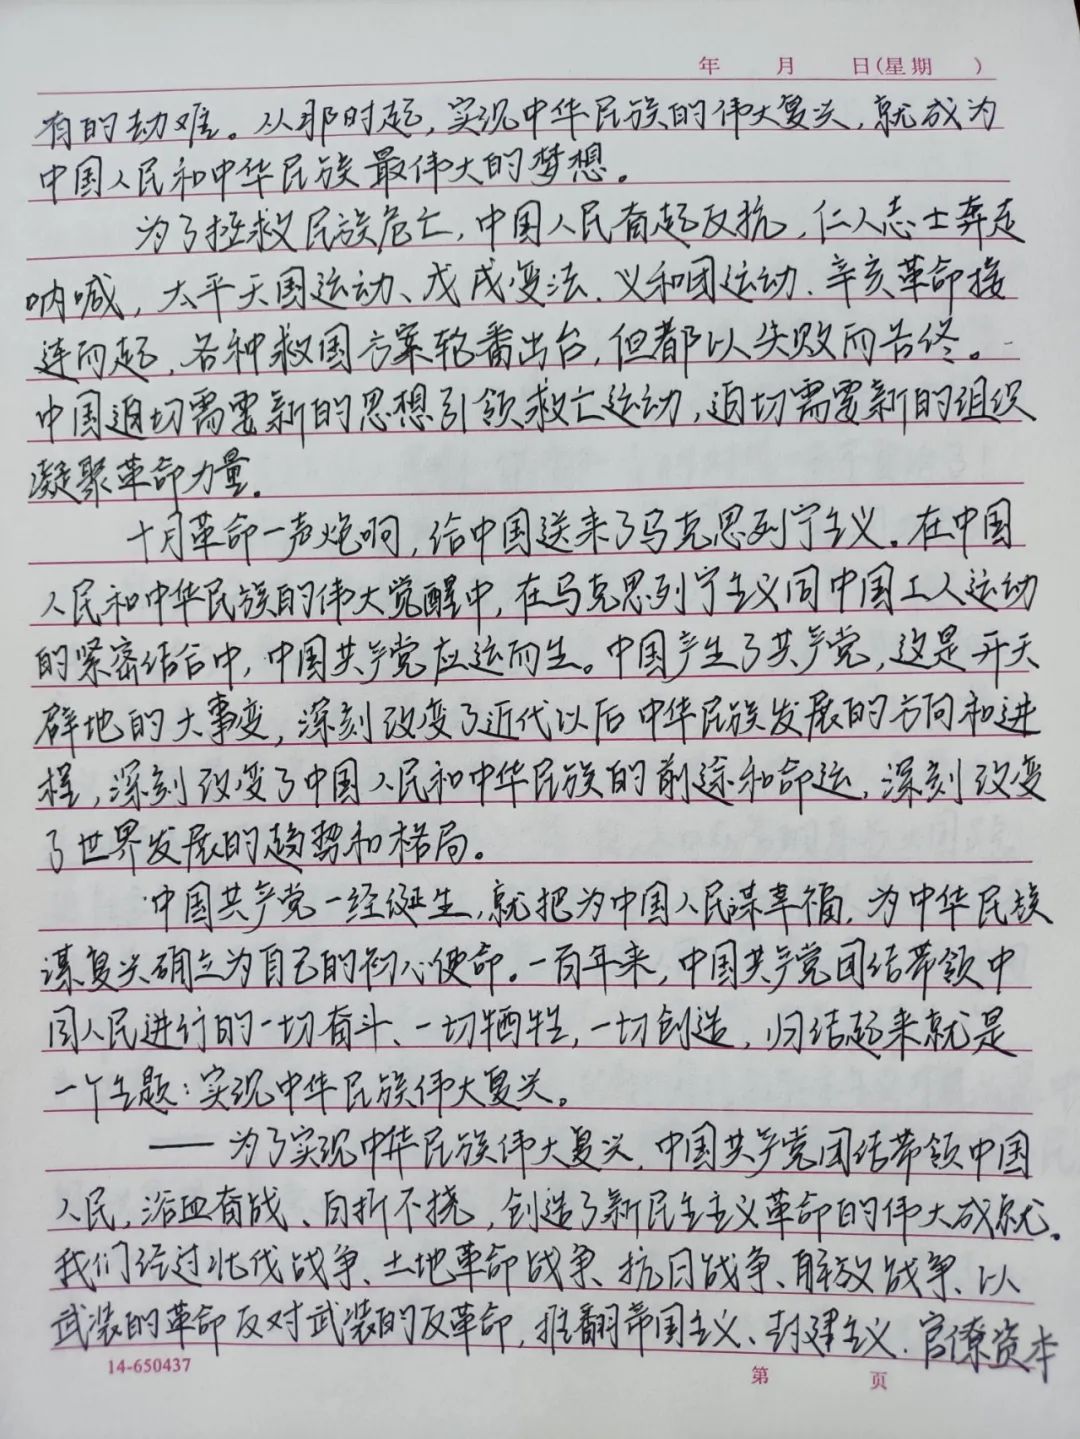 年 月 日(星期 )
有的劫难。从那时起,实现中华民族的伟大复兴,就成为
中国人民和中华民族最伟大的梦想。
为了拯救民族危亡,中国人民奋起反抗,仁人志士奔走
呐喊,太平天国运动、戊戌变法、义和团运动、辛亥革命接
连而起,各种救国方案轮番出台,但都以失败而告终。
中国迫切需要新的思想引领救亡运动,迫切需要新的组织
凝聚革命力量。
十月革命一声炮响,给中国送来了马克思列宁主义。在中国
人民和中华民族的伟大觉醒中,在马克思列宁主义同中国工人运动
的紧密结合中,中国共产党应运而生。中国产生了共产党,这是开天
辟地的大事变,深刻改变了近代以后中华民族发展的方向和进
程,深刻改变了中国人民和中华民族的前途和命运,深刻改变
了世界发展的趋势和格局。
中国共产党一经诞生,就把为中国人民谋幸福,为中华民族
谋复兴确立为自己的初心使命。一百年来,中国共产党团结带领中
国人民进行的一切奋斗、一切牺牲,一切创造,归结起来就是
一个主题:实现中华民族伟大复兴。
——为了实现中华民族伟大复兴,中国共产党团结带领中国
人民,浴血奋战、百折不挠,创造了新民主主义革命的伟大成就。
我们经过北伐战争、土地革命战争、抗日战争、解放战争、以
武装的革命反对武装的反革命,推翻帝国主义、封建主义、官僚资本
14-650437 第 页